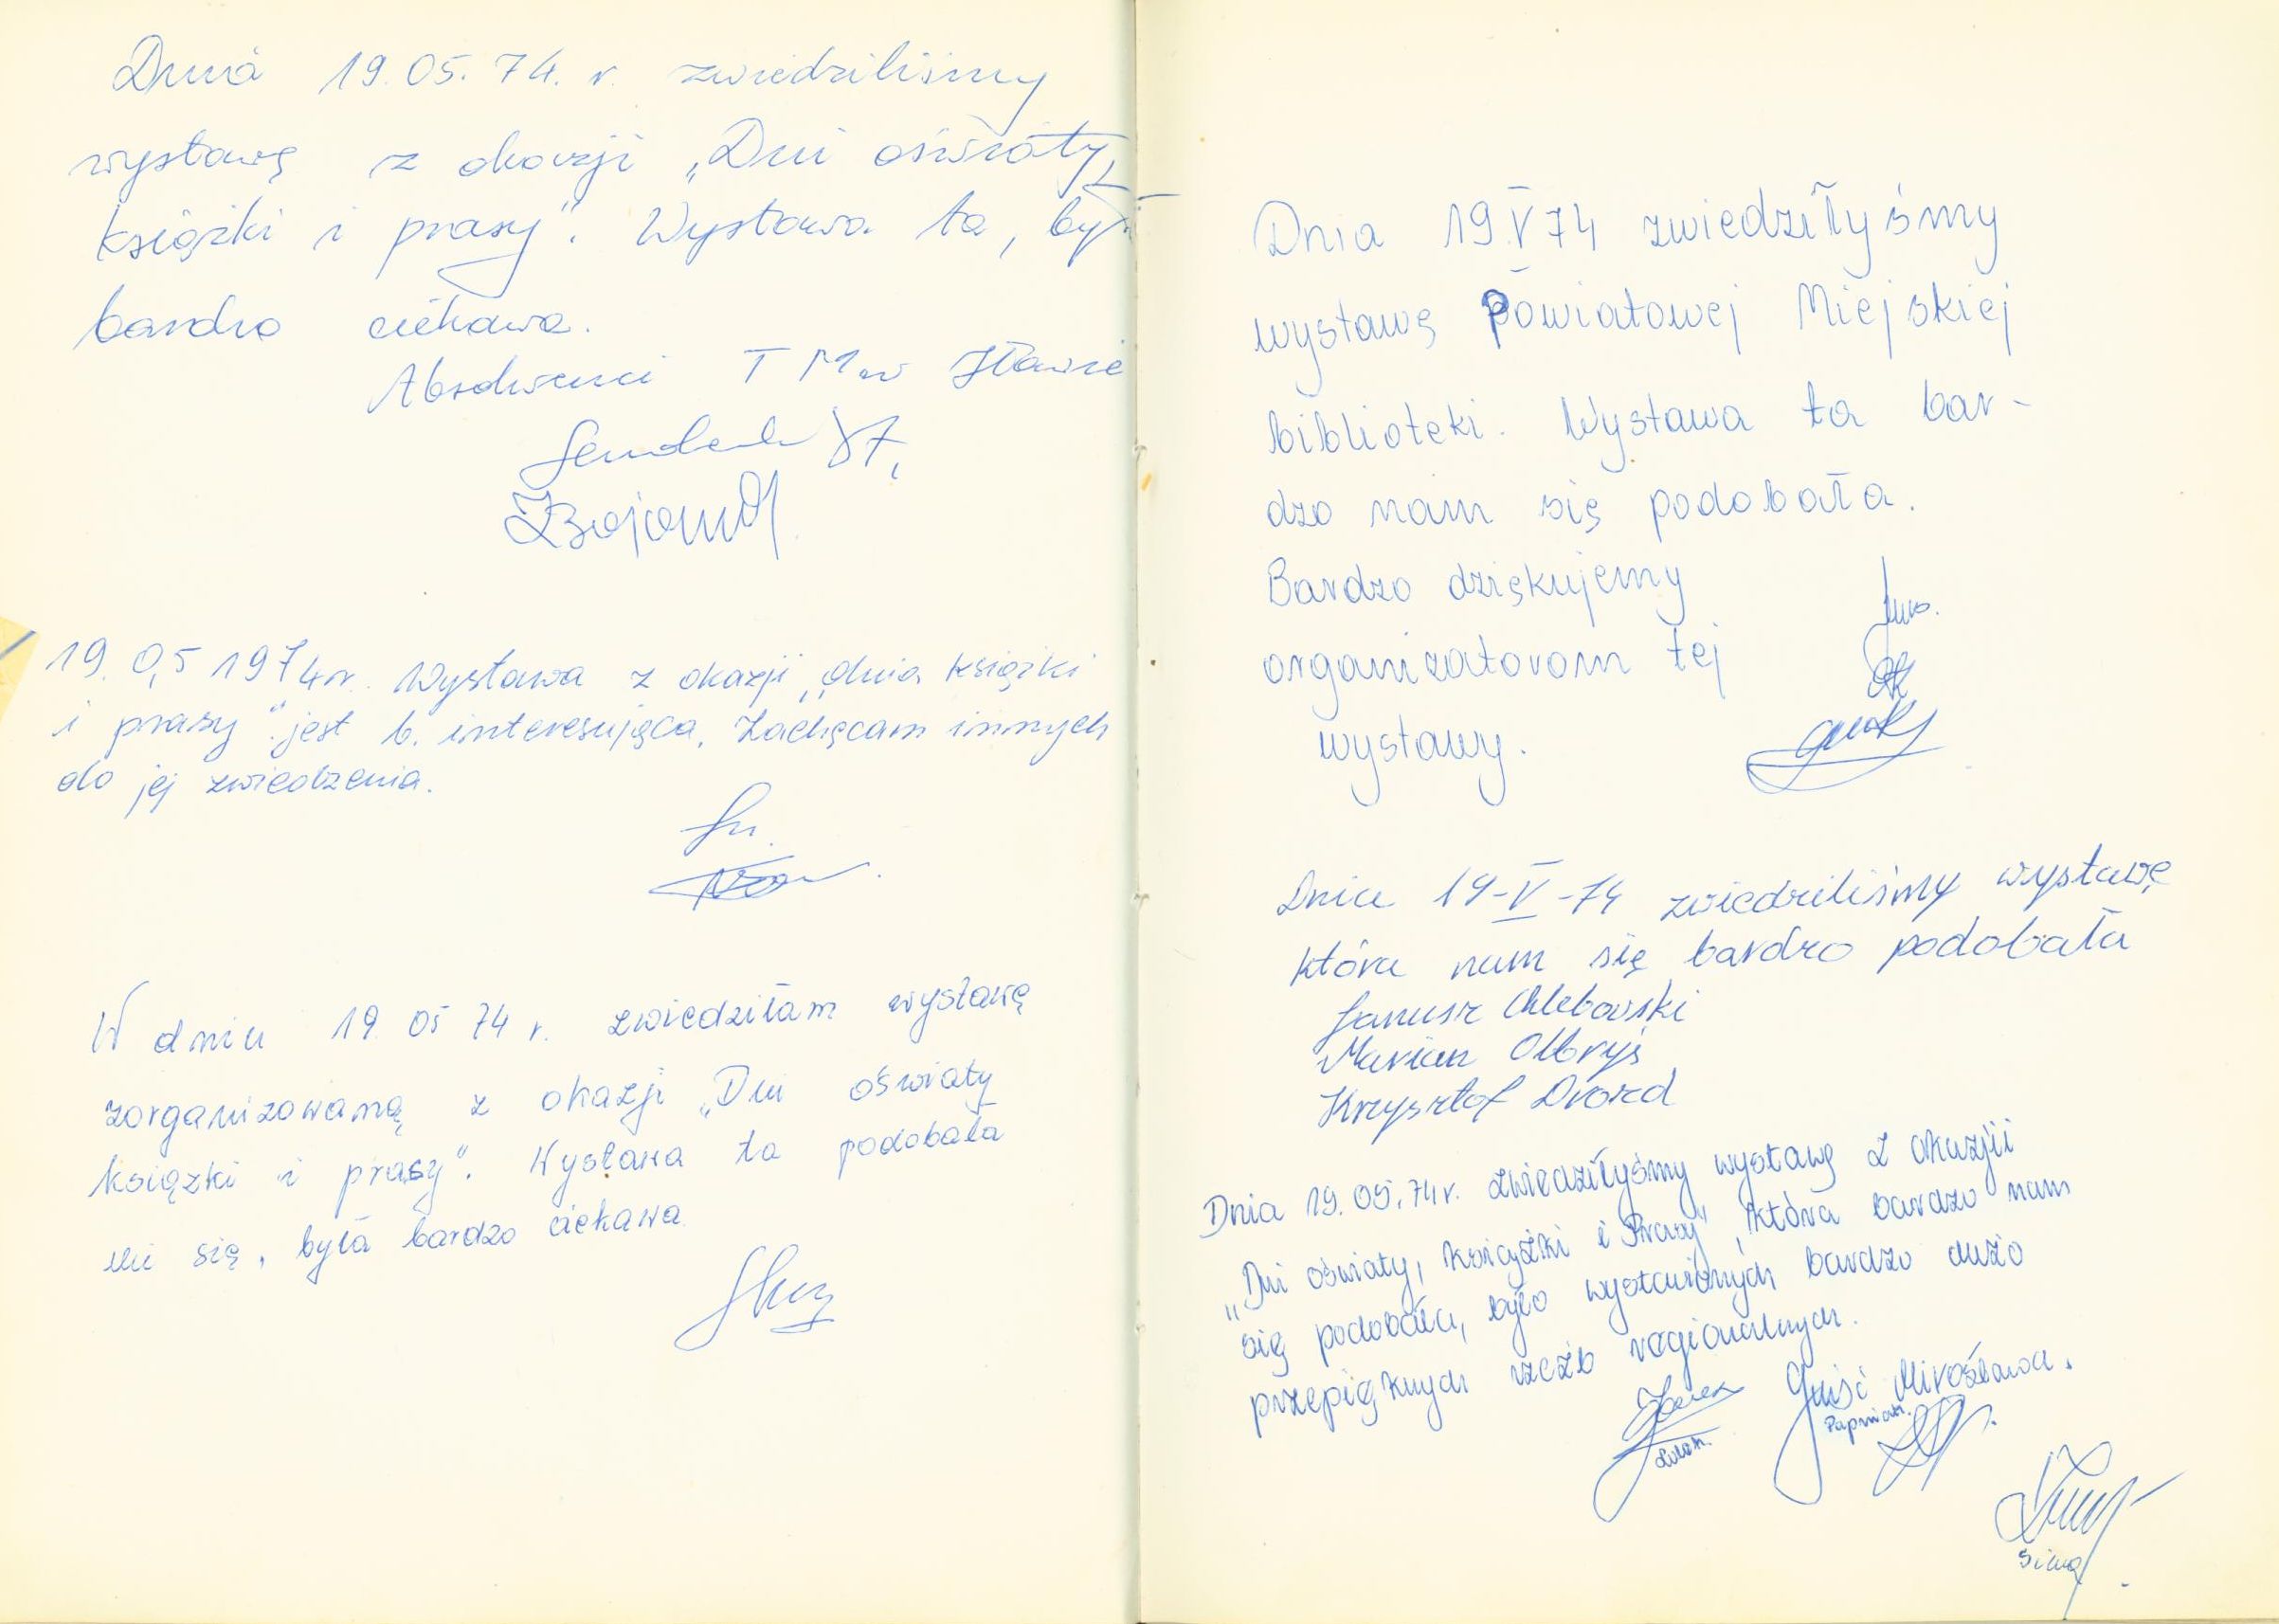 Dnia 19.05.74. r. zwiedziliśmy
wystawę z okazji „Dni oświaty,
książki i prasy". Wystawa ta, była
bardzo ciekawa.
Absolwenci T M. w Iławie
19. 0,5 1974r. Wystawa z okazji „dnia książki
i prasy" jest b. interesująca. Zachęcam innych
do jej zwiedzenia.
W dniu 19 05 74 r. zwiedziłam wystawę
zorganizowaną z okazji „Dni oświaty
książki i prasy". Wystawa ta podobała
mi się, była bardzo ciekawa.
Dnia 19.V 74 zwiedziłyśmy
wystawę Powiatowej Miejskiej
biblioteki. Wystawa ta bar-
dzo nam się podobała.
Bardzo dziękujemy
organizatorom tej
wystawy.
Dnia 19-V-74 zwiedziliśmy wystawę
która nam się bardzo podobała
Janusz Chlebowski
Marian Olbryś
Krzysztof Drozd
Dnia 19.05.74r. zwiedziłyśmy wystawę z okazji
„Dni oświaty, książki i Prasy", która bardzo nam
się podobała, było wystawionych bardzo dużo
przepięknych rzeźb regionalnych.
Mirosława.